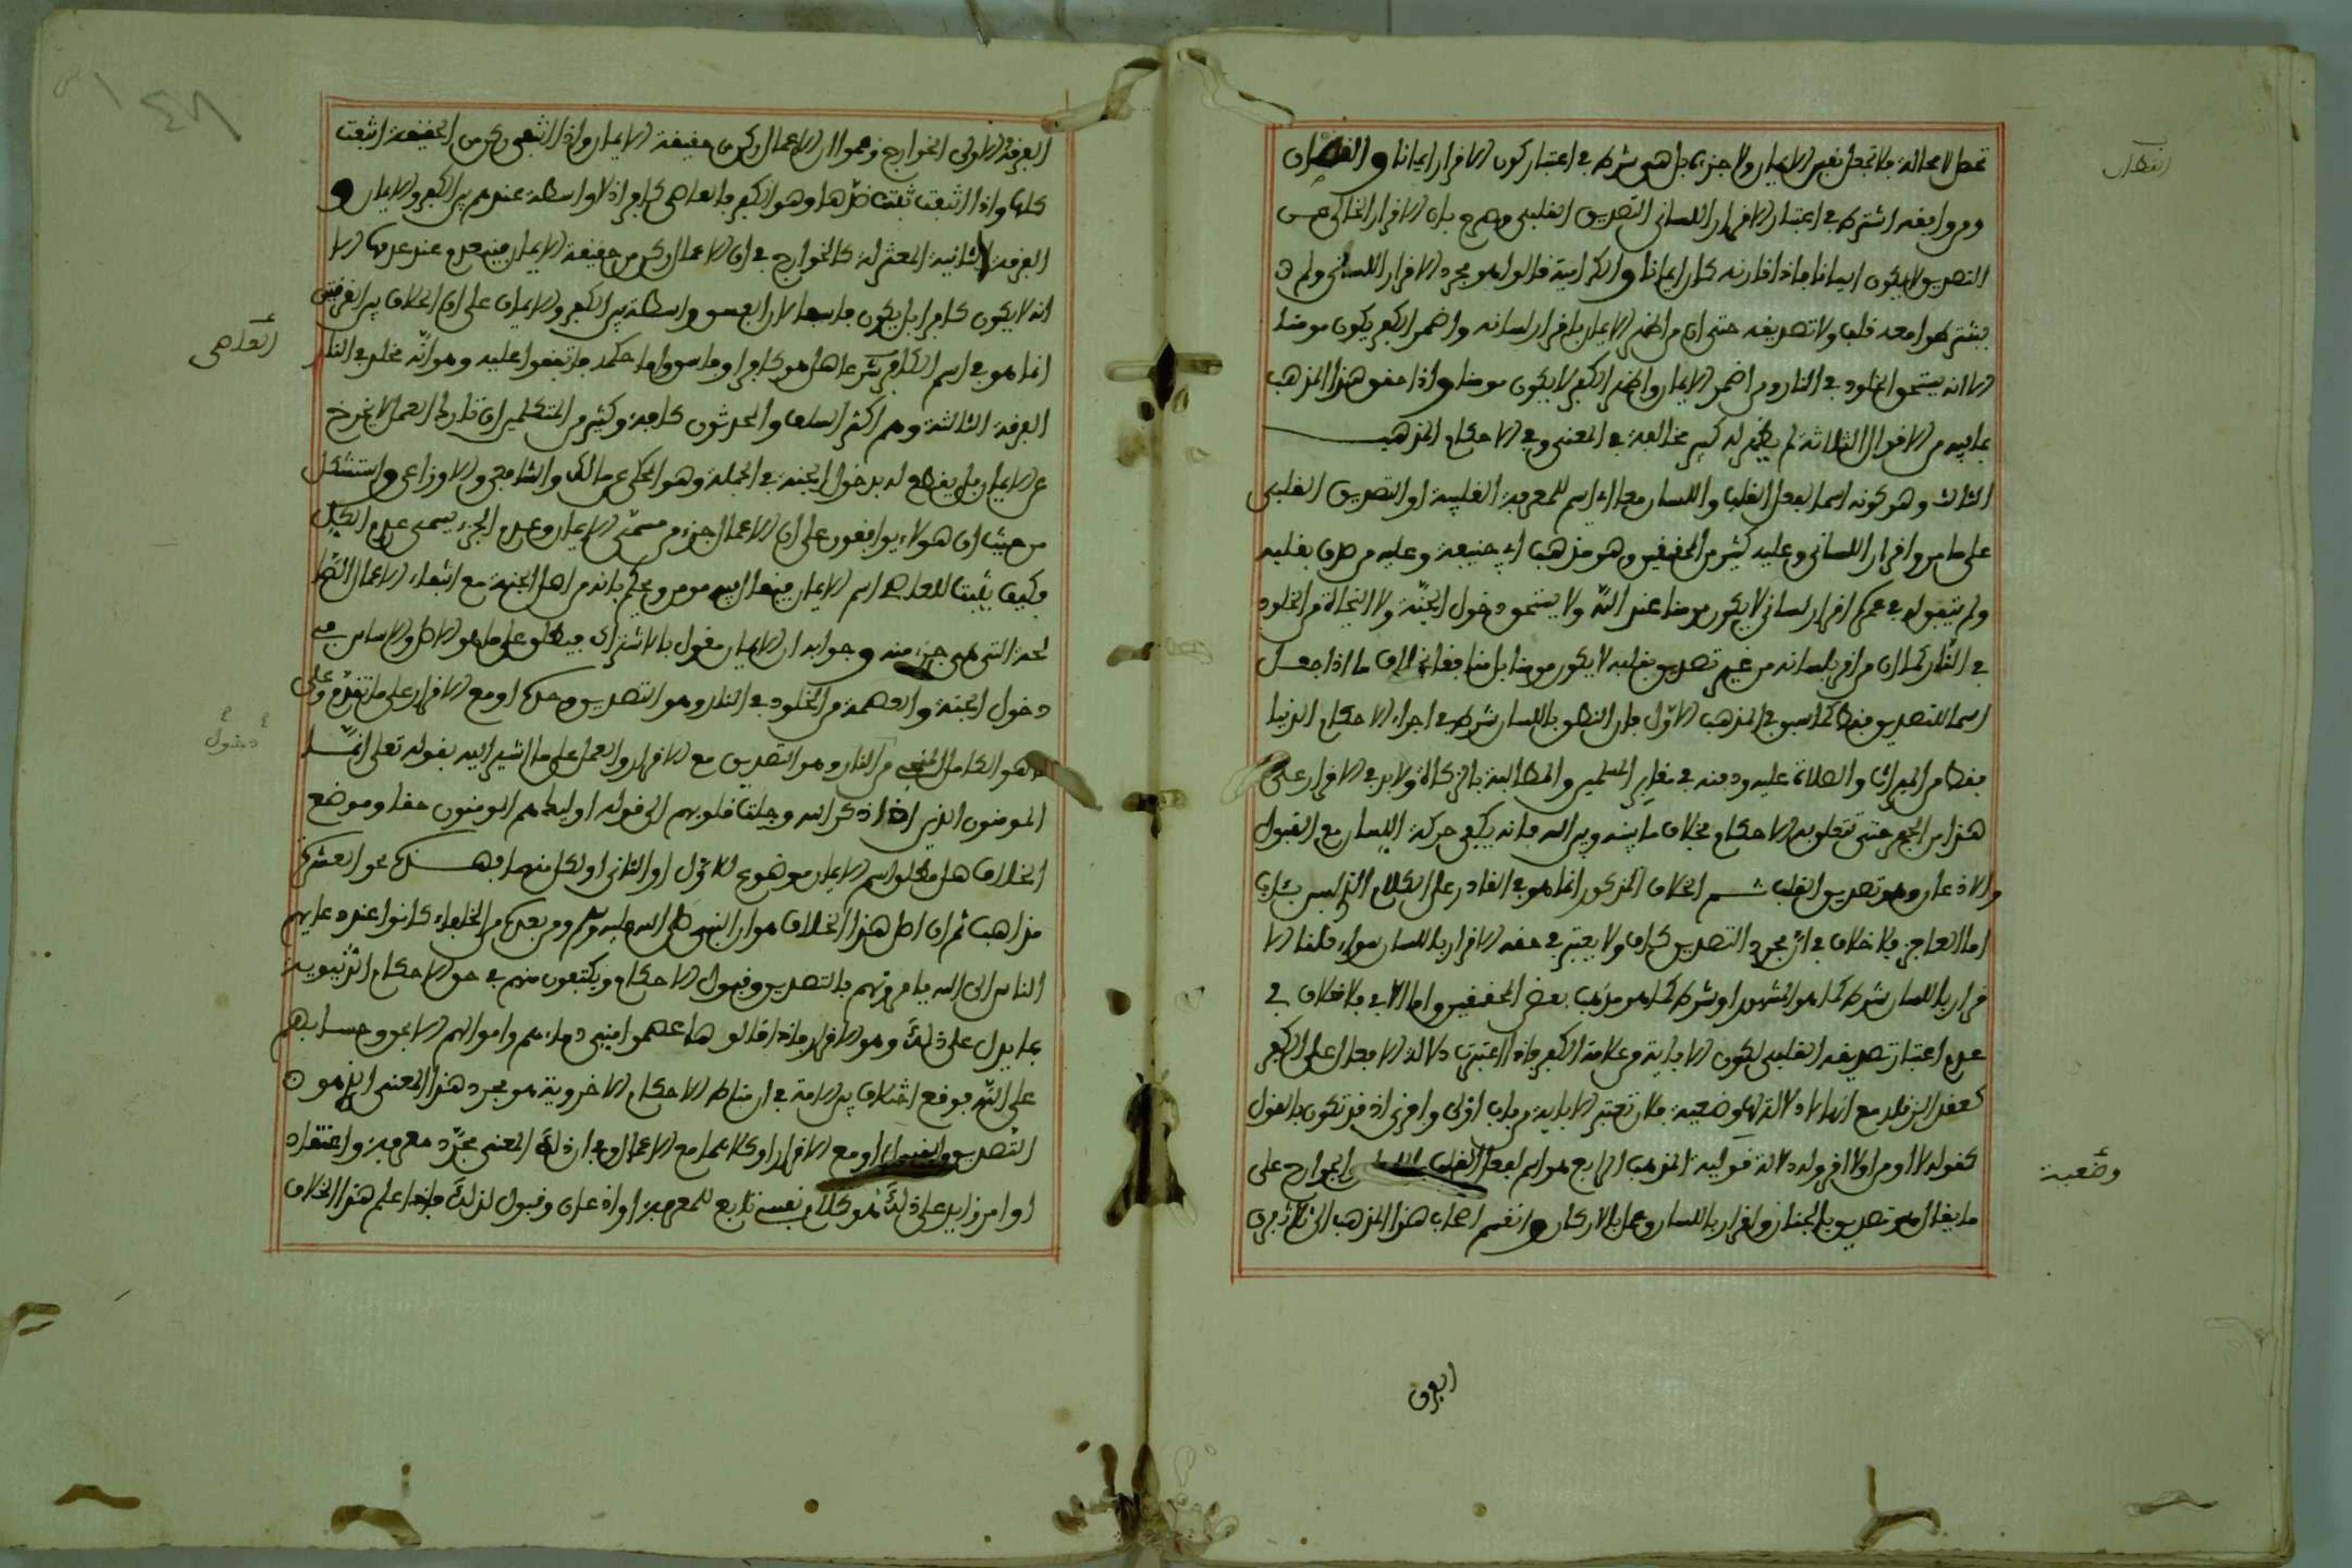 تحصل لا محالة فلا تجعل نفس الايمان ولا جزءه بل هي شرط في اعتبار كون الاقرار ايمانا والقطان
القطان
ومن وافقه اشترط في اعتبار الاقرار اللساني التصديق القلبي وصرح بان الاقرار الخالي عن
التصديق لا يكون ايمانا فاذا قارنه كان ايمانا والكرامية قالوا هو مجرد الاقرار اللساني ولم
يشترطوا معه قلب ولا تصديقه حتى ان من اظهر الايمان باقرار لسانه واضمر الكفر يكون مومنا
الا انه يستحق الخلود في النار ومن اضمر الايمان واظهر الكفر لا يكون مومنا واذا حقق هذا المذهب
بما فيه من الاقوال الثلاثة لم يظهر له كبير مخالفة في المعنى وفي الاحكام المذهب
الثالث وهو كونه اسما لفعل القلب واللسان معا اي اسم للمعرفة القلبية او التصديق القلبي
على ما مر واقرار اللساني وعليه كثير من المحققين وهو مذهب ابي حنيفة وعليه من صدق بقلبه
ولم يتفق له في عمره اقرار لساني لا يكون مومنا عند الله ولا يستحق دخول الجنة ولا النجاة من الخلود
في النار كما ان من اقر بلسانه من غير تصديق بقلبه لا يكون مومنا بل منافقا بخلاف ما اذا جعل
اسما للتصديق فقط كما سبق في المذهب الاول فان النطق باللسان شرط في اجراء الاحكام الدنيا
فقط من الميراث والصلاة عليه ودفنه في مقابر المسلمين والمطالبة بالزكاة ولا بد في الاقرار على
هذا من الجهر حتى تتعلق به الاحكام بخلاف ما بينه وبين الله فانه يكفي حركة اللسان مع القبول
والاذعان وهو تصديق القلب ثم الخلاف المذكور انما هو في القادر على الكلام الذي ليس بئاب
اما العاجز فلا خلاف في ان مجرد التصديق كاف ولا يعتبر في حقه الاقرار باللسان سواء قلنا الا
قرار باللسان شرط كما هو المشهور او شرط كما هو مذهب بعض المحققين واما الابي فلا خلاف في
عدم اعتبار تصديقه القلبي لكون الاباية من علامة الكفر فاذا اعتبرت دلالة الافعال على الكفر
كعقد الزنار مع انها لا دلالة لها وضعية فلان تعتبر الاباية من باب اولى واحرى اذ قد تكون بالقول
كقوله لا اومن او لا اقر وله دلالة قولية المذهب الرابع هو اسم لفعل القلب والجوارح على
وضعية
ما يقال هو تصديق بالجنان واقرار باللسان وعمل بالاركان وانقسم اصحاب هذا المذهب الى ثلاث فرق
الفرق
الفرقة الاولى الخوارج زعموا ان الاعمال ركن من حقيقة الايمان واذا انتفى ركن من الحقيقة انتفت
كلها واذا انتفت ثبت ضدها وهو الكفر فالعاصي كافر اذ لا واسطة عندهم بين الكفر والايمان و
الفرقة الثانية المعتزلة كالخوارج في ان الاعمال ركن من حقيقة الايمان فينعدم عند عدمها الا
انه لا يكون كافرا بل يكون فاسقا لان الفسق واسطة بين الكفر والايمان على ان الخلاف بين الفرقتين
انما هو في اسم الكافر شرعا هل هو كافر او فاسق واما حكمه فاتفقوا عليه وهو انه مخلد في النار
العاصي
الفرقة الثالثة وهم اكثر السلف والمحدثون كافة وكثير من المتكلمين ان تارك العمل لا يخرج
عن الايمان بل يقطع له بدخول الجنة في الجملة وهو المحكي عن مالك والشافعي والاوزاعي واستشكل
من حيث ان هولاء يوافقون على ان الاعمال جزء من مسمى الايمان وعدم الجزء يسمى عدم الكل
فكيف يثبت للعاصي اسم الايمان فيقال فيه مومن ويحكم بانه من اهل الجنة مع انتفاء الاعمال الصا
لحة التي هي جزء منه وجوابه ان الايمان مقول بالاشتراك فيطلق على ما هو الاصل والاساس في
دخول الجنة والعصمة من الخلود في النار وهو التصديق وحده او مع الاقرار على ما تقدم وعلى
دخول
ما هو الكامل المنجي من النار وهو التصديق مع الاقرار والعمل على ما اشير اليه بقوله تعالى انما
المومنون الذين اذا ذكر الله وجلت قلوبهم الى قوله اوليك هم المومنون حقا وموضع
الخلاف هل مطلق اسم الايمان موضوع للاول او الثاني او لكل منهما فهذه نحو العشرة
مذاهب ثم ان اصل هذا الخلاف هو ان النبي صلى الله عليه وسلم ومن بعده من الخلفاء كانوا عند دعايهم
الناس الى الله يامرونهم بالتصديق وقبول الاحكام ويكتفون منهم في حق الاحكام الدنيوية
بما يدل على ذلك وهو الاقرار فاذا قالوها عصموا مني دماءهم واموالهم الا بحق وحسابهم
على الله فوقع اختلاف بين الامة في ان مناط الاحكام الاخروية هو مجرد هذا المعنى الذي هو
التصديق والقبول او مع الاقرار او كلاهما مع الاعمال وفي ان ذلك المعنى مجرد معرفة واعتقاد
او امر زايد على ذلك هو كلام نفسي تابع للمعرفة او اذعان وقبول لذلك فاذا علم هذا الخلاف